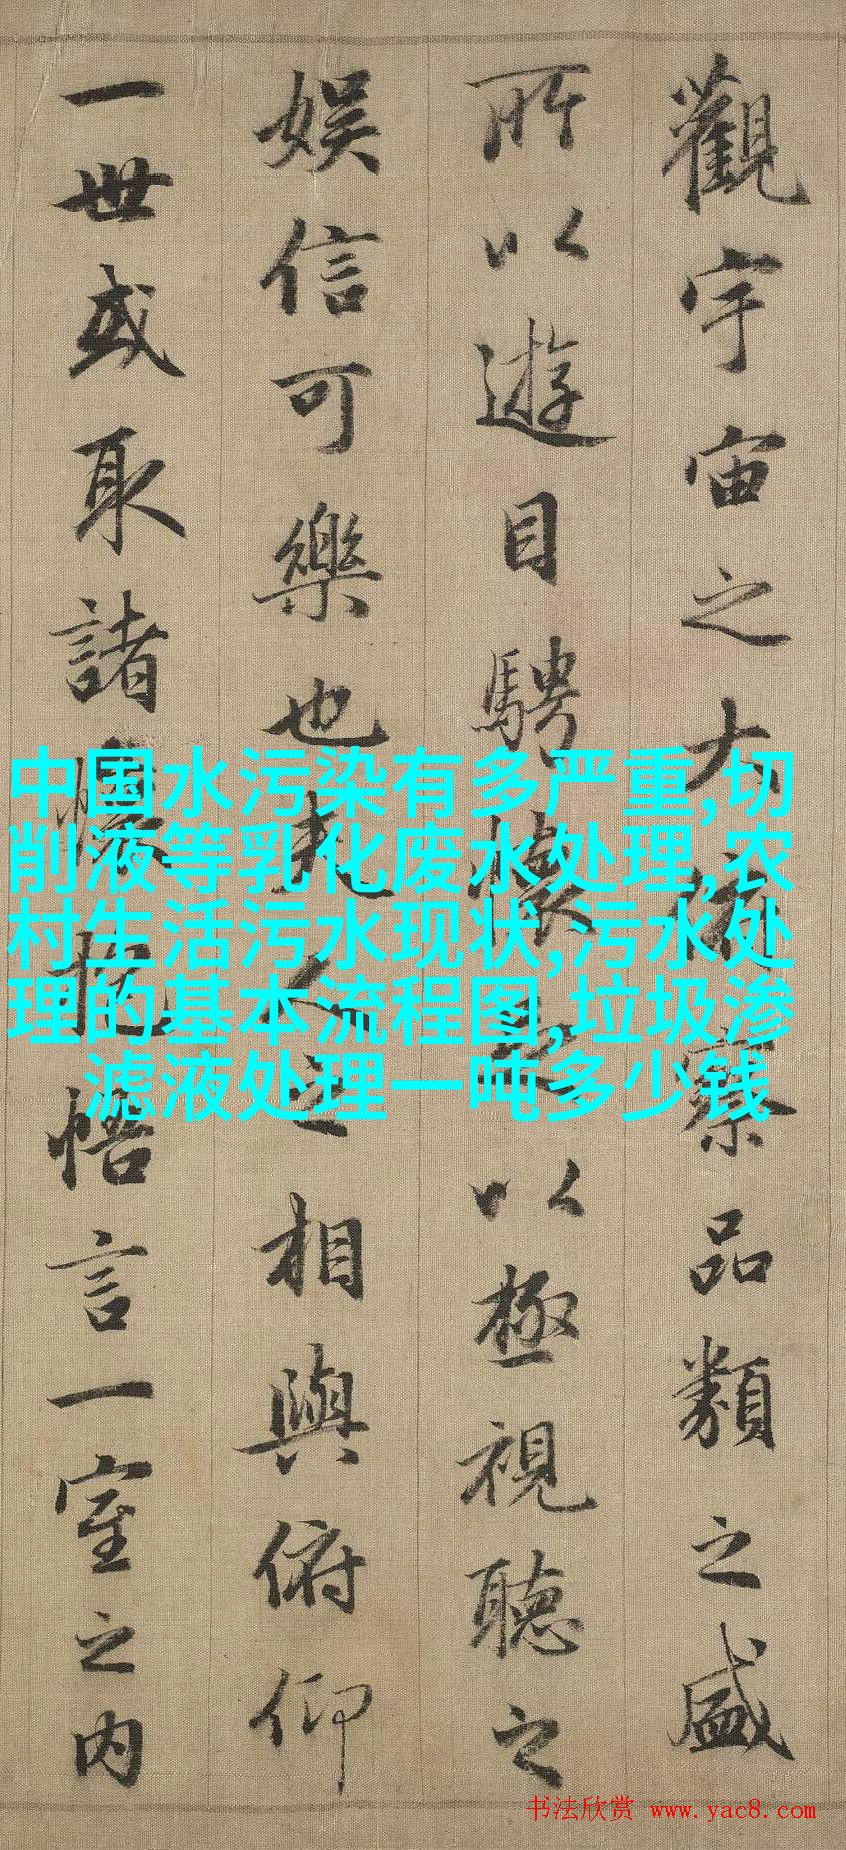 觀宇宙之大俯察品類之盛
所以遊目騁懷足以極視聽之
娛信可樂也夫人之相與俯仰
一世或取諸懷抱悟言一室之內
中国水污染有多严重,切
削液等乳化废水处理,农
村生活污水现状,污水处
理的基本流程图,垃圾渗
滤液处理一吨多少钱
书法欣赏 www.yac8.com